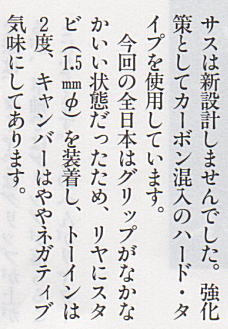 サスは新設計しませんでした。強化
策としてカーボン混入のハード・タ
イプを使用しています。
　今回の全日本はグリップがなかな
かいい状態だったため、リヤにスタ
ビ（1.5㎜φ）を装着し、トーインは
2度、キャンバーはややネガティブ
気味にしてあります。